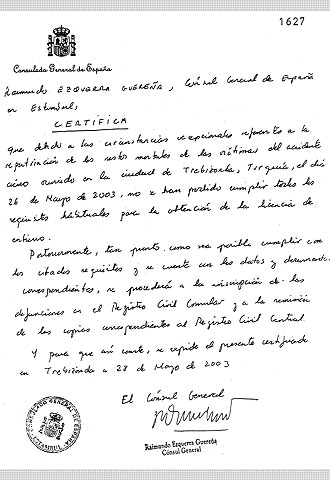 1627
Consulado General de España
Raimundo EZQUERRA GUEREÑA, Cónsul General de España
en Estambul,
CERTIFICA
que debido a las circunstancias excepcionales referentes a la
repatriación de los restos mortales de las víctimas del accidente
aéreo ocurrido en la ciudad de Trebisonda, Turquía, el día
26 de Mayo de 2003, no se han podido cumplir todos los
requisitos habituales para la obtención de la licencia de
entierro.
Posteriormente, tan pronto como sea posible cumplir con
los citados requisitos y se cuente con los datos y documentos
correspondientes, se procederá a la inscripción de las
defunciones en el Registro Civil Consular y a la remisión
de las copias correspondientes al Registro Civil Central.
Y para que así conste, se expide el presente certificado
en Trebisonda a 28 de Mayo de 2003
El Cónsul General
Raimundo Ezquerra Guereña
Cónsul General
CONSULADO GENERAL DE ESPAÑA
ESTAMBUL